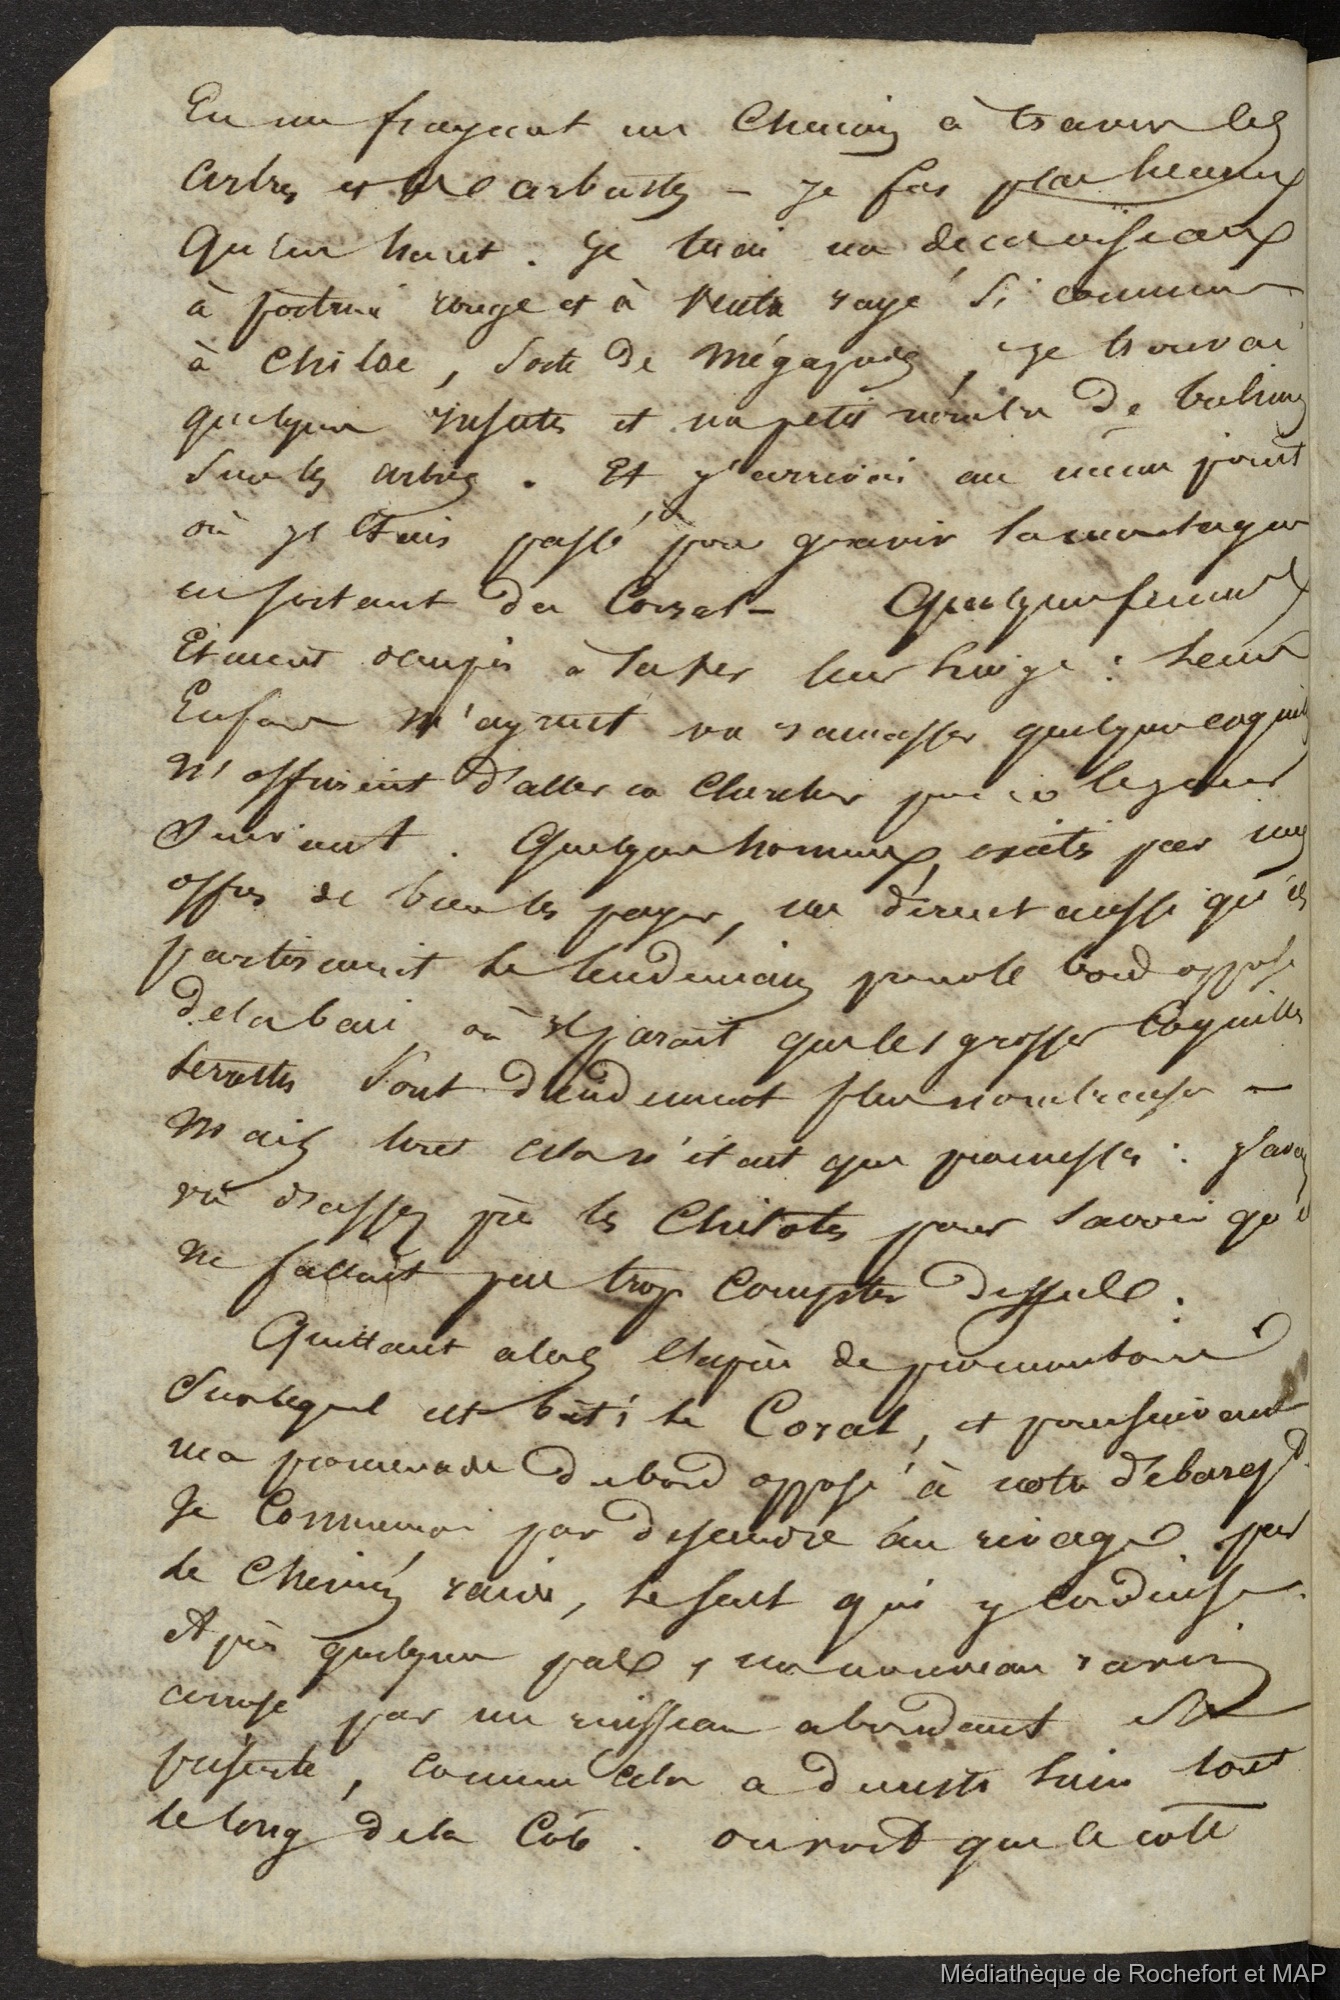 En me frayant un chemin à travers les
arbres et les arbustes – je fus plus heureux
qu'en haut. Je tuai un de ces oiseaux
à poitrine rouge et à ventre rayé si commun
à Chiloe, sorte de Mégapode, je trouvai
quelques insectes et un petit nombre de bulimes
sur les arbres. Et j'arrivai au même point
où j'étais passé pour gravir la montagne
en sortant du Corral – Quelques femmes
étaient occupées à laver leur linge : leurs
enfans m'ayant vu ramasser quelques coquilles
m'offrirent d'aller en chercher pour le jour
suivant. Quelques hommes, excités par mes
offres de bien les payer, me dirent aussi qu'ils
partiraient le lendemain pour le bord opposé
de la baie où il parait que les grosses coquilles
terrestres sont plus nombreuses –
Mais tout cela n'étant que promesses : j'avais
vu d'assez près les Chilotes pour savoir qu'il
ne fallait pas trop compter dessus.
Quittant alors l'espèce de promontoire
sur lequel est bâti le Coral, et poursuivant
ma promenade du bord opposé à notre débarqt.
Je commençai par descendre au rivage par
le chemin, le seul qui y conduise.
Après quelques pas, un nouveau ravin
arrosé par un ruisseau abondant se
présente, comme cela a du reste lieu tout
le long de la Côte. On voit que la côte
Médiathèque de Rochefort et MAP